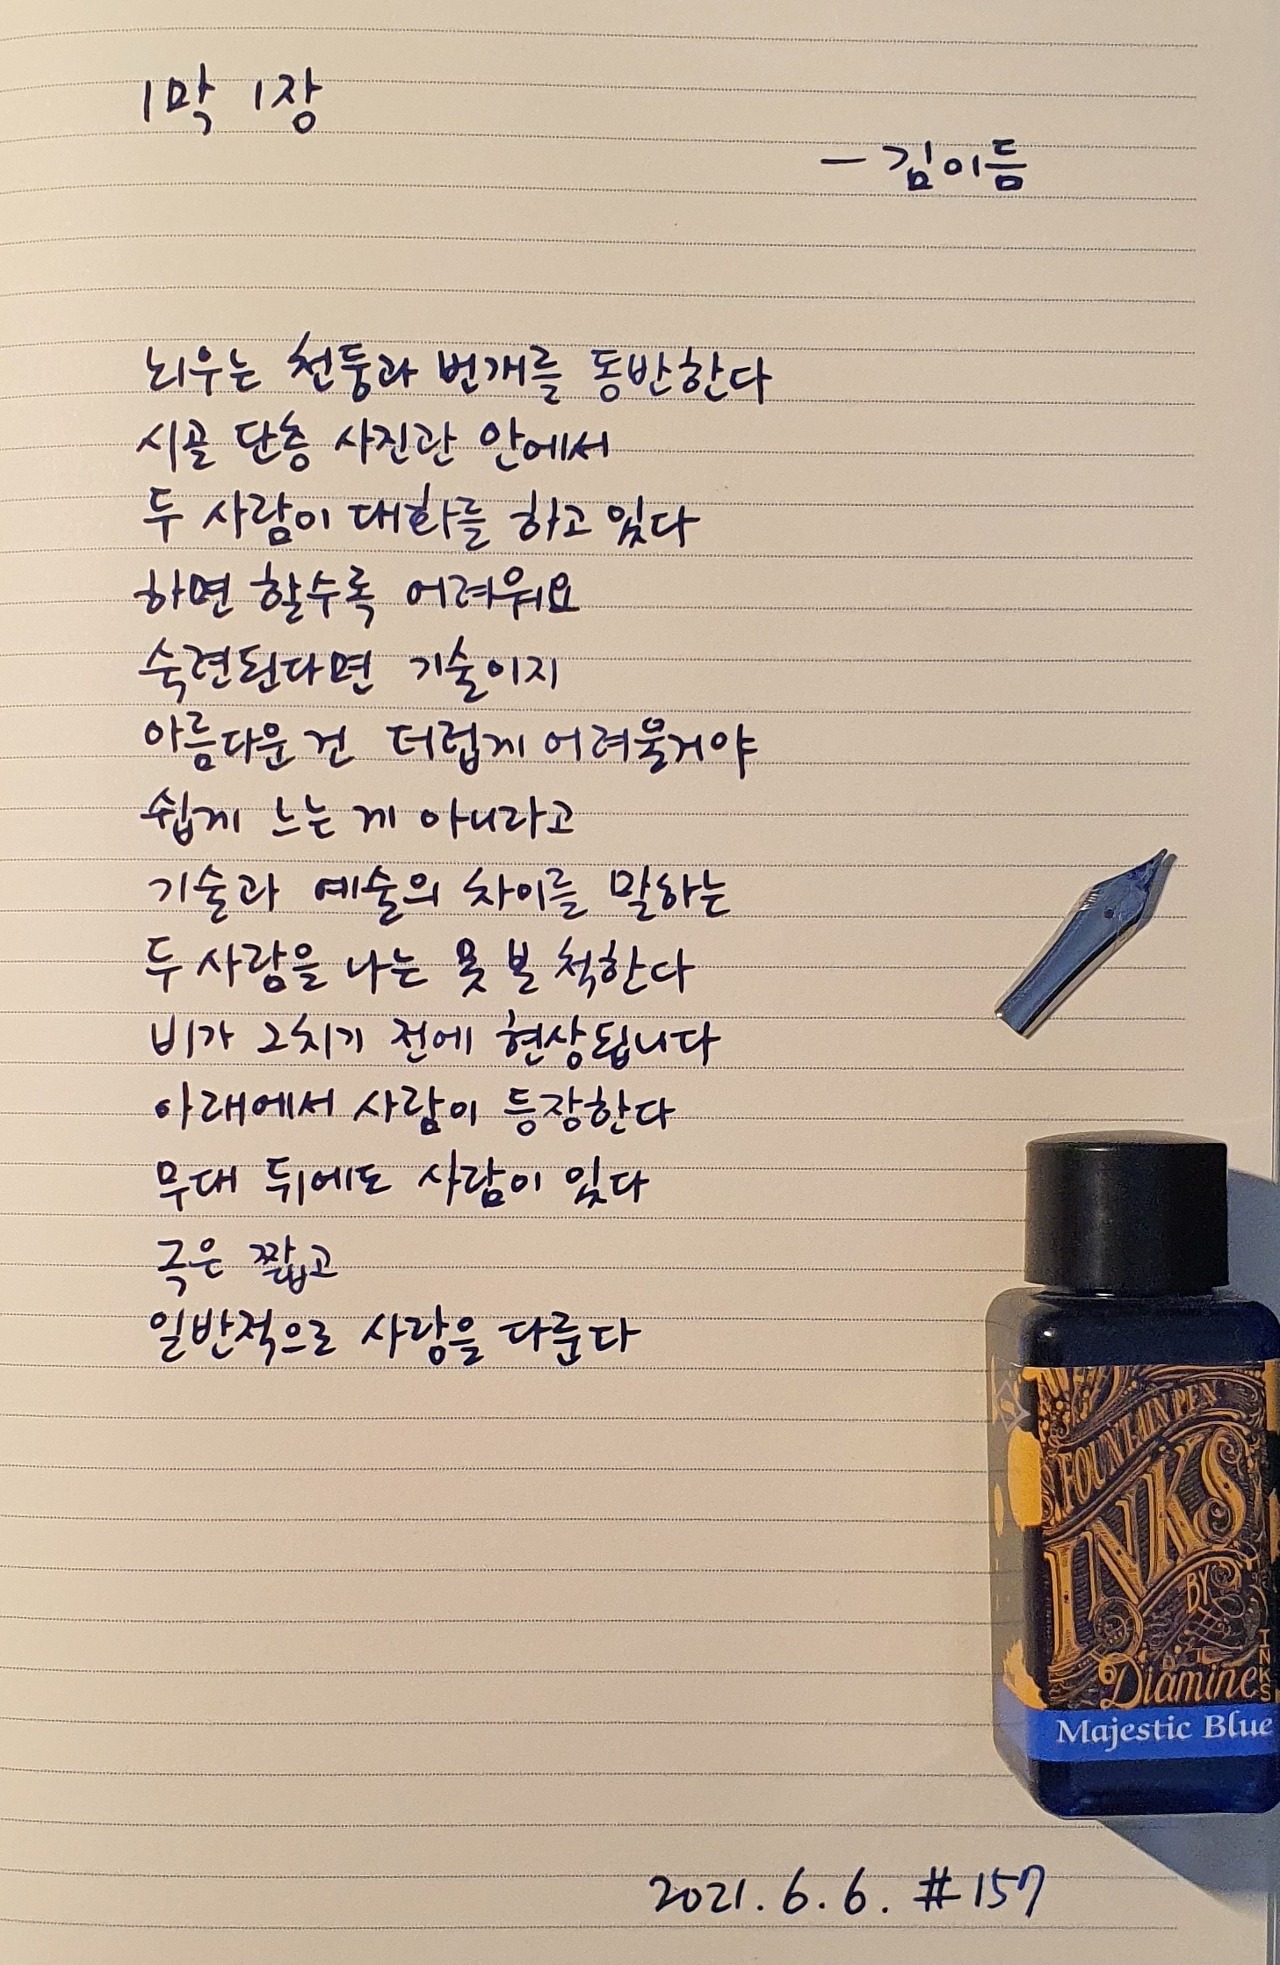 1막 1장
- 김이듬
뇌우는 천둥과 번개를 동반한다
시골 단층 사진관 안에서
두 사람이 대화를 하고 있다
하면 할수록 어려워요
숙련된다면 기술이지
아름다운 건 더럽게 어려울거야
쉽게 느는 게 아니라고
기술과 예술의 차이를 말하는
두 사람을 나는 못 본 척한다
비가 그치기 전에 현상됩니다
아래에서 사람이 등장한다
무대 뒤에도 사람이 있다
극은 짧고
일반적으로 사랑을 다룬다
FOUNTAIN PEN
INKS
BY
Diamine
INKS
Majestic Blue
2021.6.6. #157